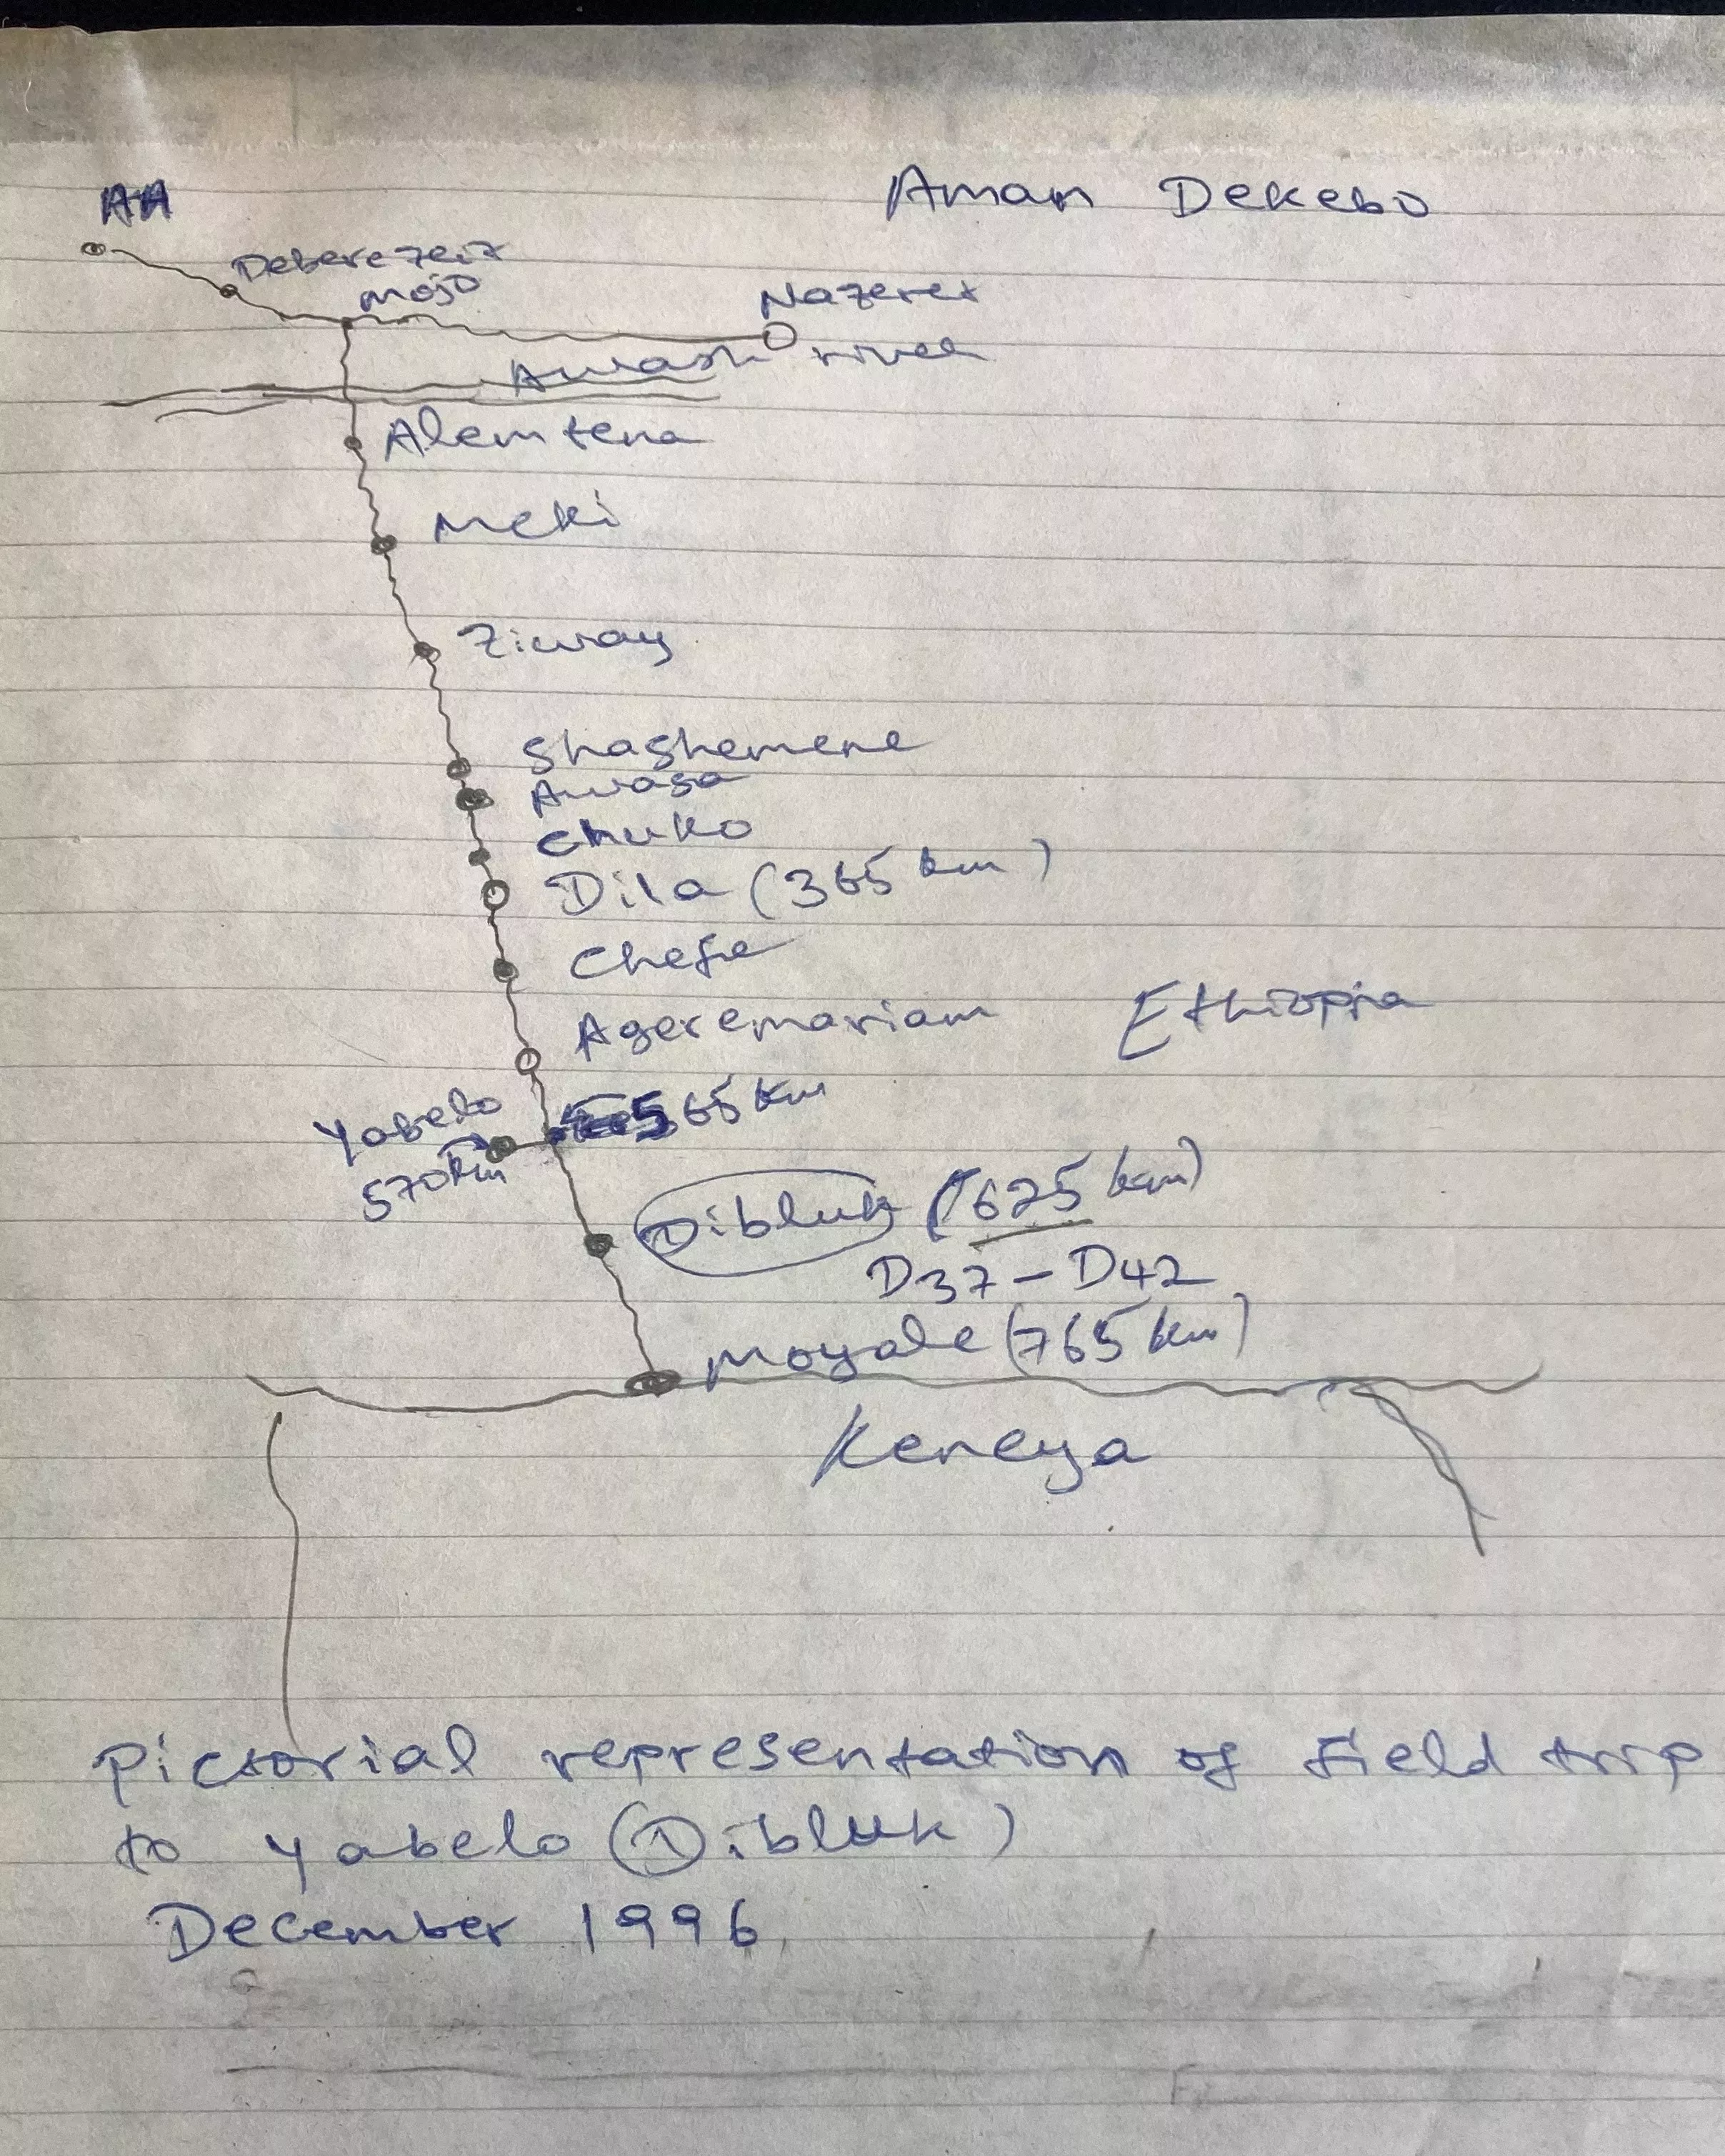 AA
Aman Dekebo
Deberezeit
Mojo
Nazeret
Awash river
Alemtena
Meki
Ziway
Shashemene
Awasa
Chuko
Dila (365 km)
Chefe
Ageremariam
Ethiopia
Yabelo
570km
565 km
Dibluk (625 km)
D37-D42
Moyale (765 km)
Keneya
Pictorial representation of Field trip
to Yabelo (Dibluk)
December 1996